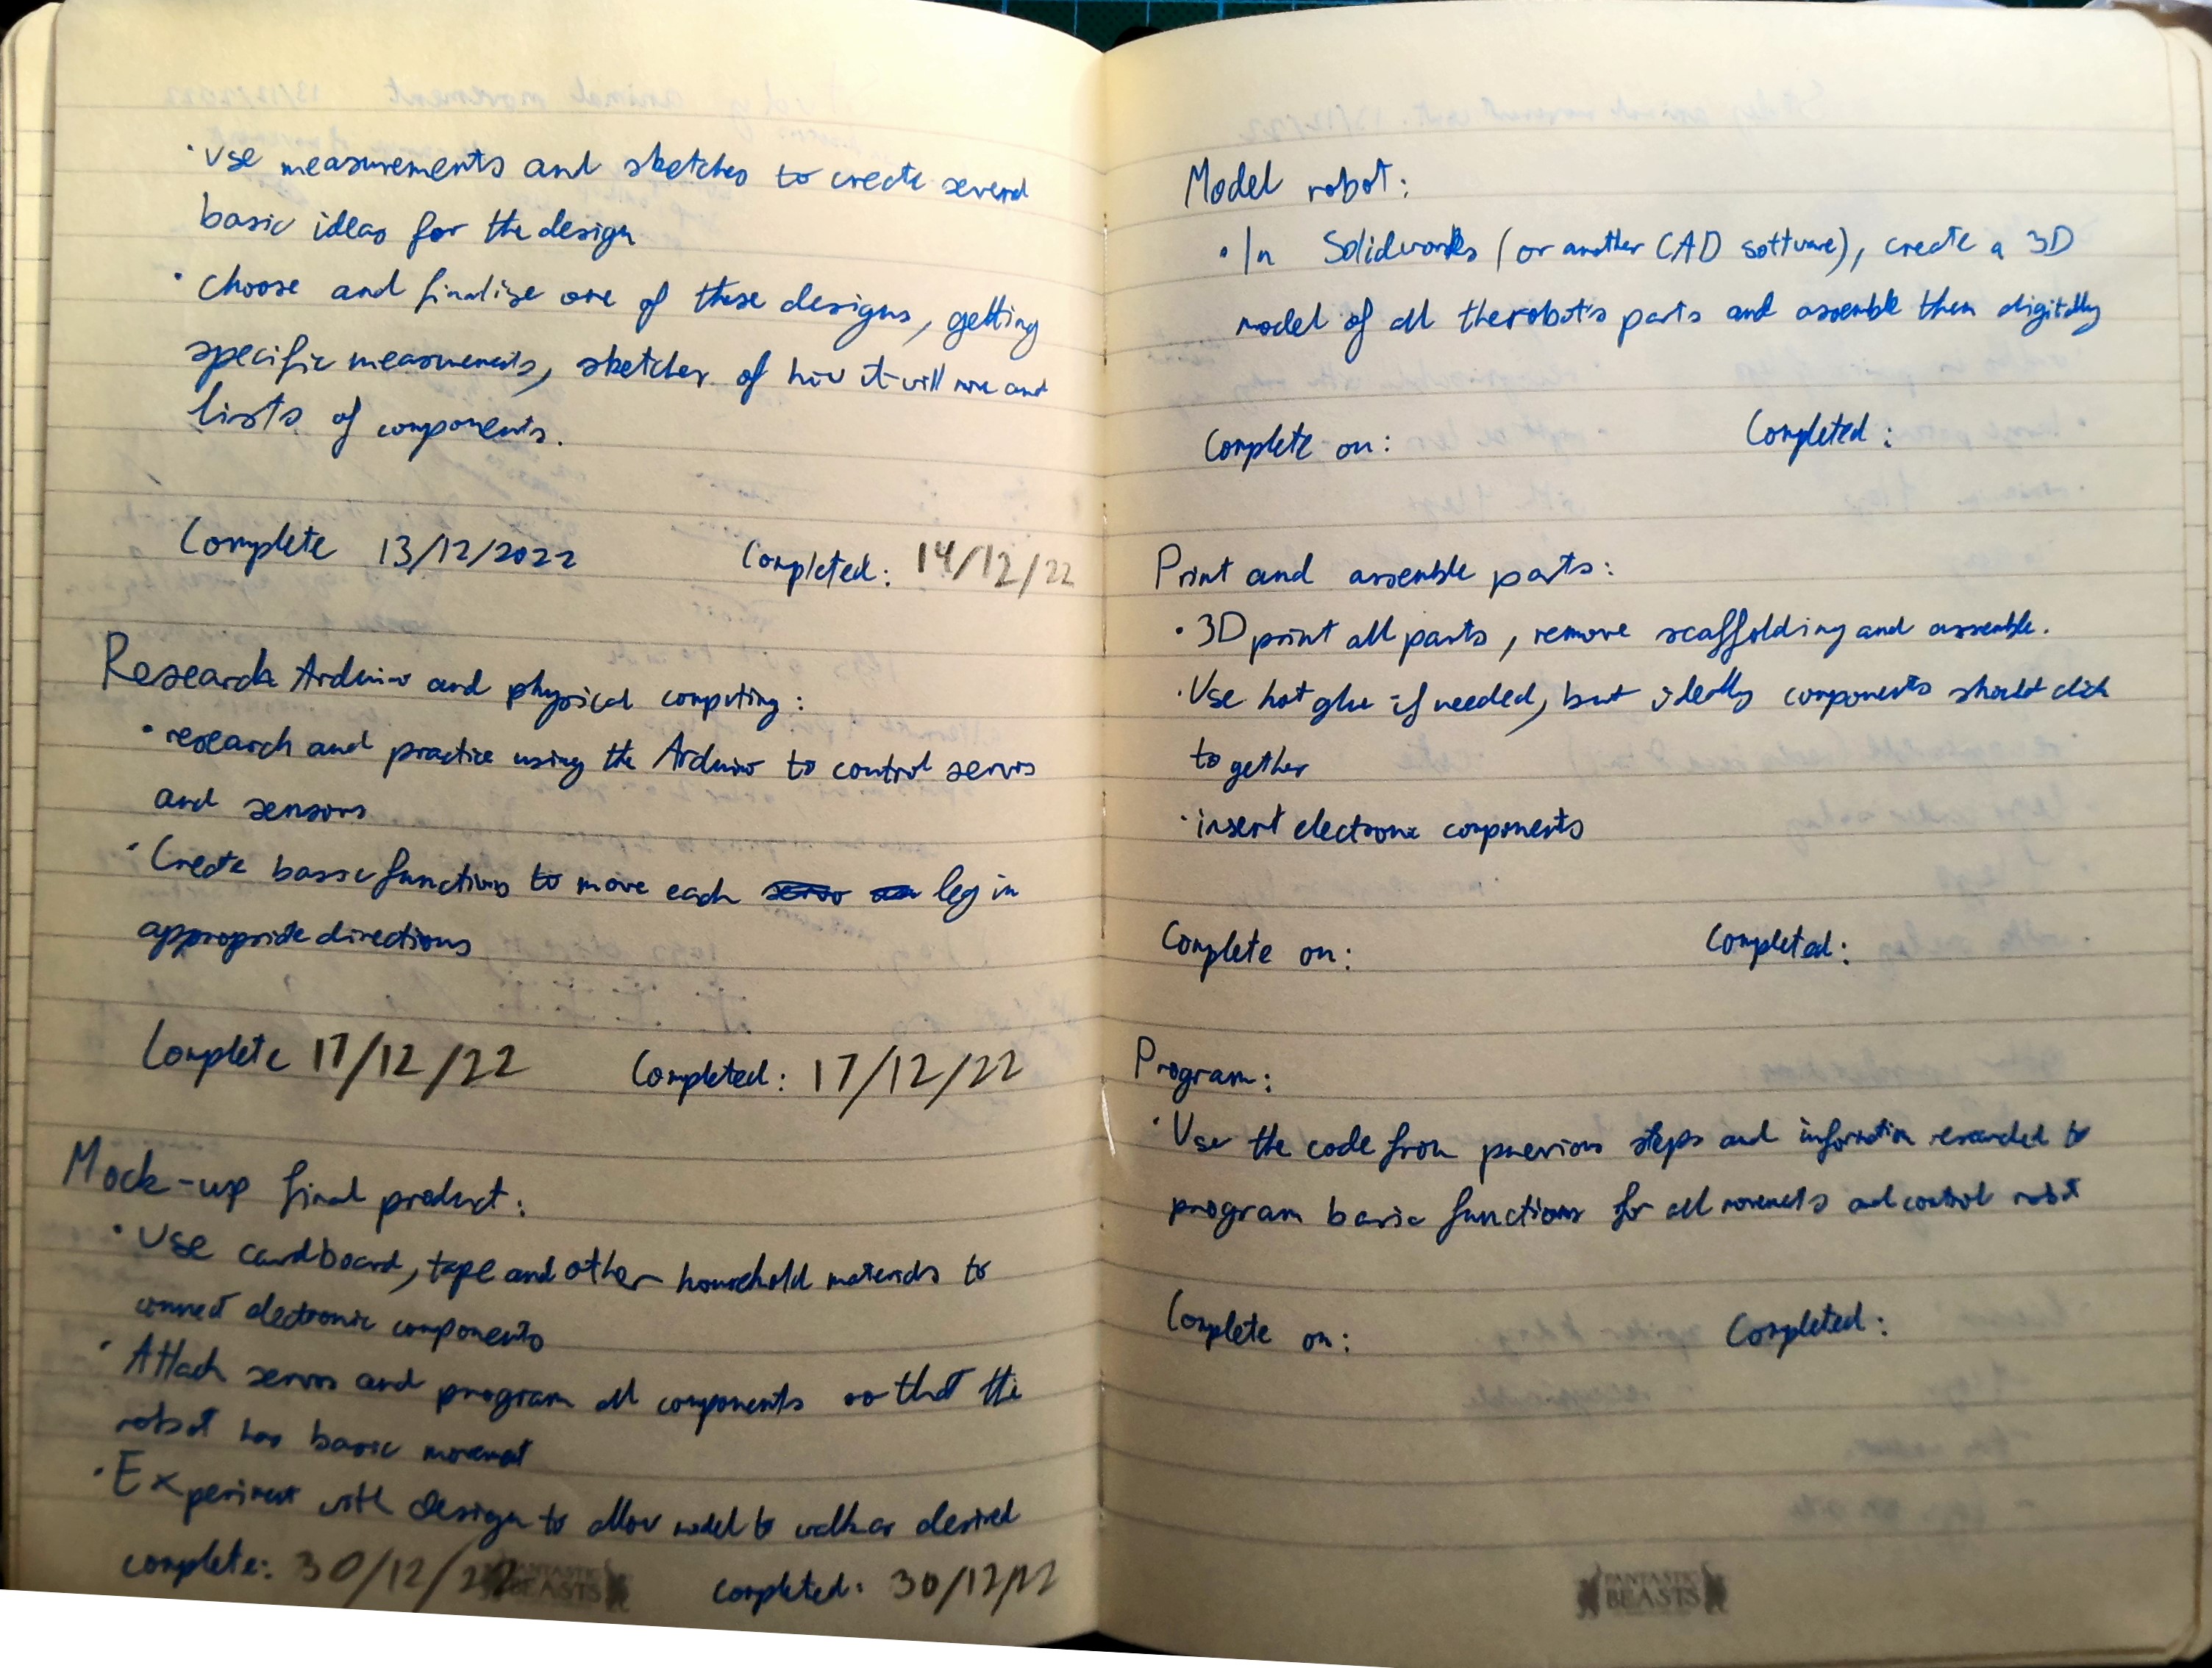 · Use measurements and sketches to create several
basic ideas for the design
· Choose and finalise one of these designs, getting
specific measurements, sketches of how it will move and
lists of components.
Complete 13/12/2022 Completed: 14/12/22
Research Arduino and physical computing:
· research and practice using the Arduino to control servos
and sensors
· Create basic functions to move each leg in
appropriate directions
Complete 17/12/22 Completed: 17/12/22
Mock-up final product:
· Use cardboard, tape and other household materials to
connect electronic components
· Attach servos and program all components so that the
robot has basic movement
· Experiment with design to allow model to walk as desired
complete: 30/12/22 completed: 30/12/22
FANTASTIC
BEASTS
Model robot:
· In Solidworks (or another CAD software), create a 3D
model of all the robot's parts and assemble them digitally
Complete on: Completed:
Print and assemble parts:
· 3D print all parts, remove scaffolding and assemble.
· Use hot glue if needed, but ideally components should click
together
· insert electronic components
Complete on: Completed:
Program:
· Use the code from previous steps and information researched to
program basic functions for all movements and control robot
Complete on: Completed:
FANTASTIC
BEASTS